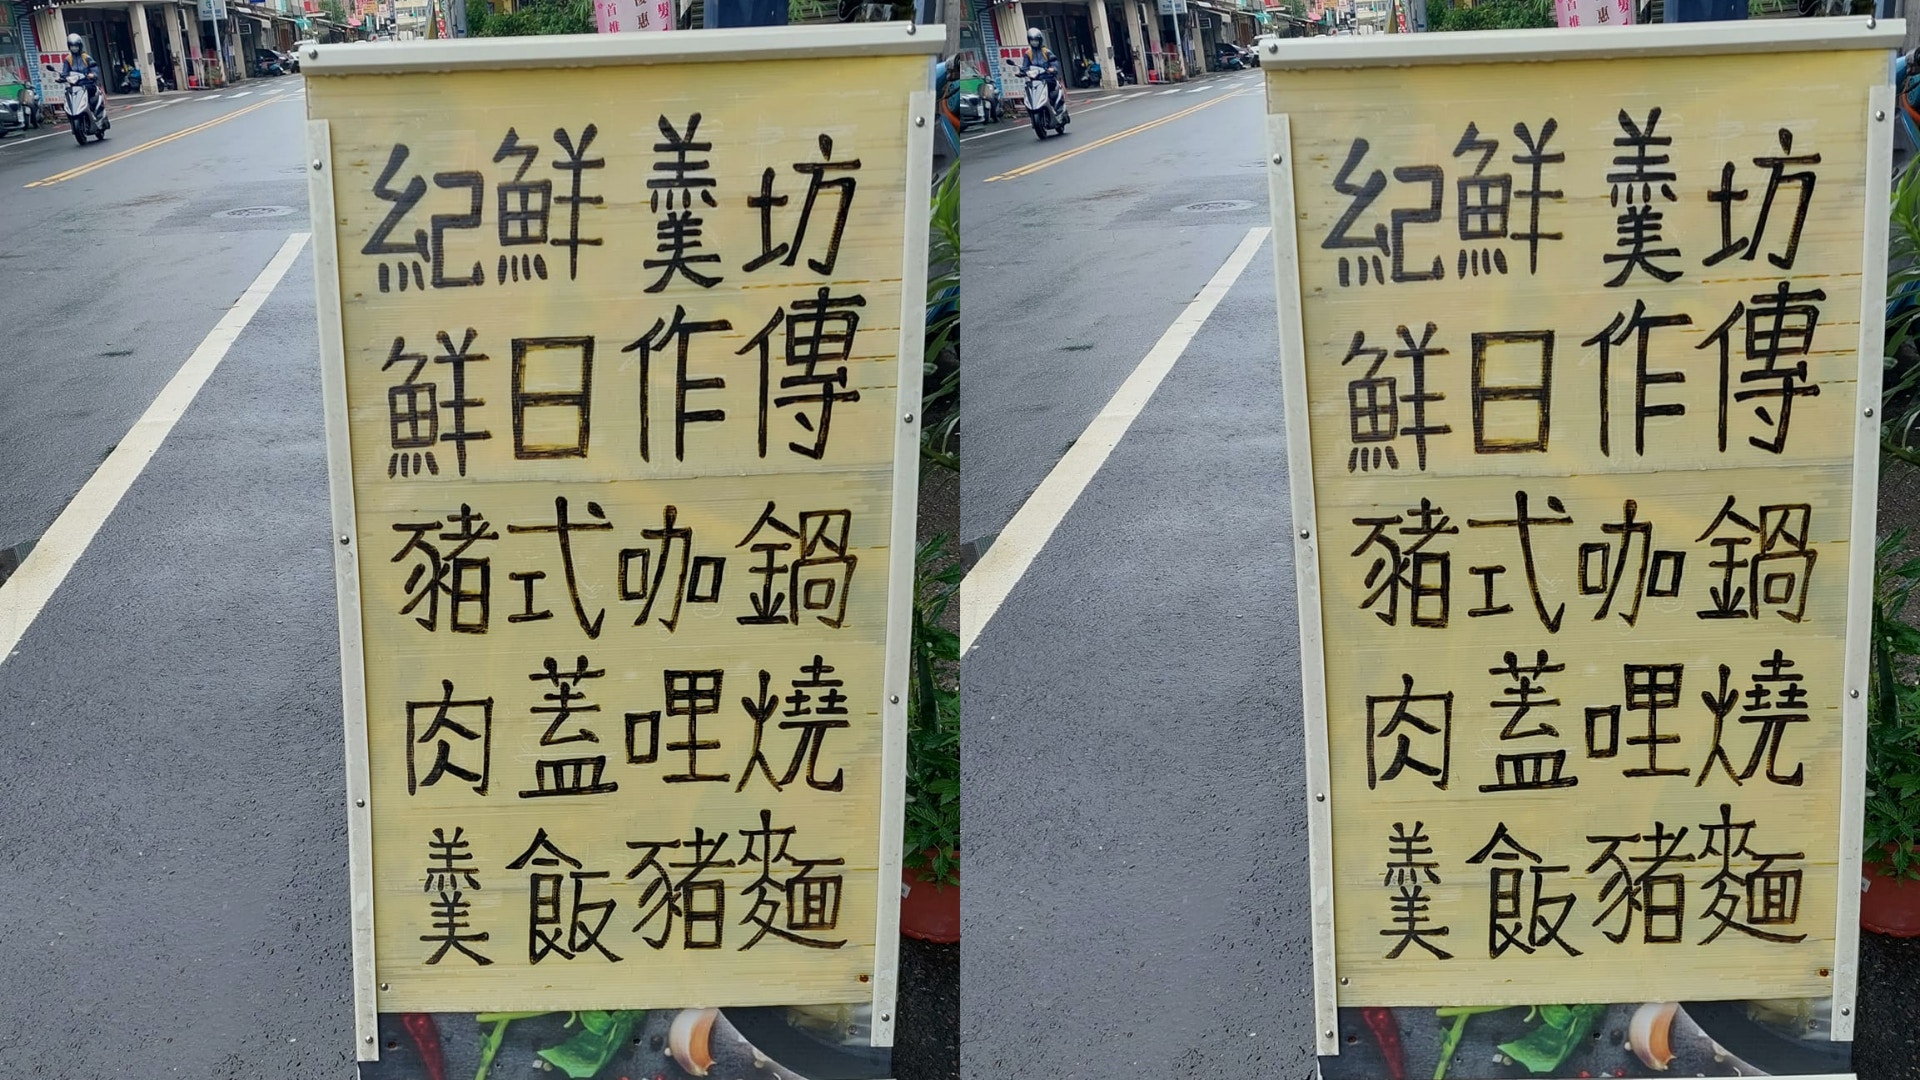 紀鮮羹坊
鮮豬肉羹
日式蓋飯
作咖哩豬
傳鍋燒麵
紀鮮羹坊
鮮豬肉羹
日式蓋飯
作咖哩豬
傳鍋燒麵